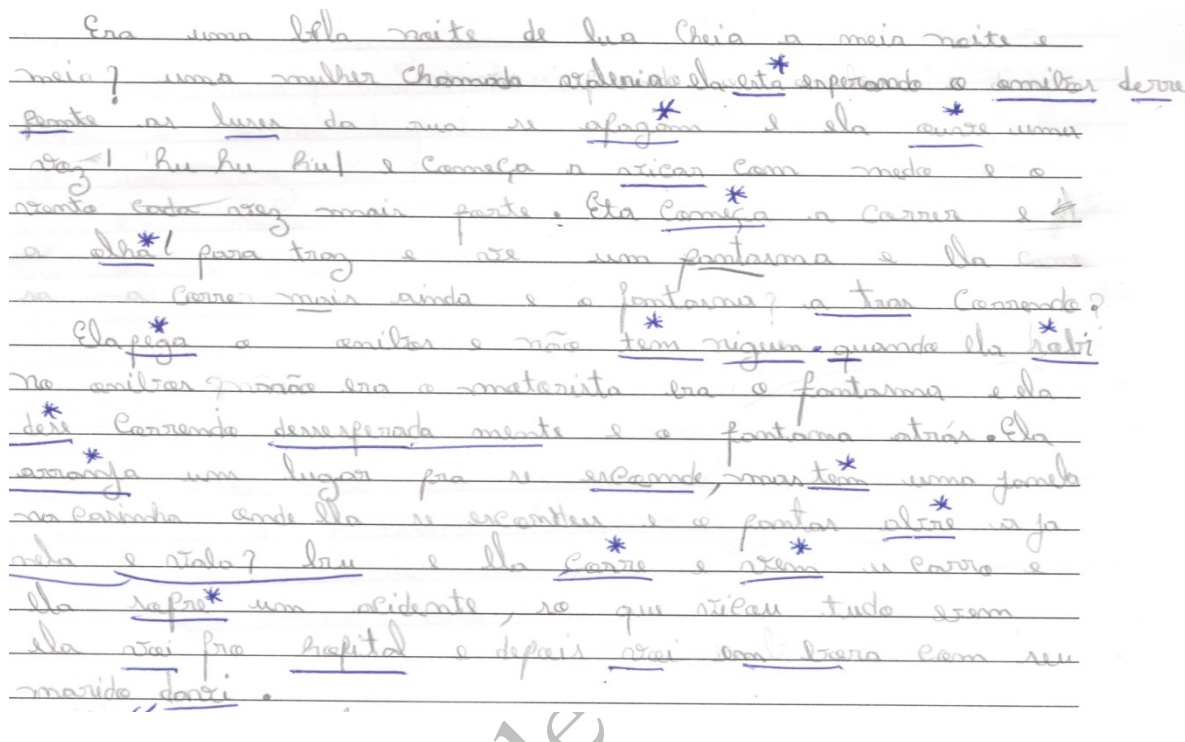 Era uma bela noite de lua cheia a meia noite e
meia? uma mulher chamada valenia ela esta esperando o onibos derre
pente as luses da rua se apagam e ela ouvre uma
voz! hu hu hiu! e começa a vicar com medo e o
vento cada vez mais forte. Ela começa a correr e
a olha! para traz e ve um fantasma e lla come
sa a corre mais ainda e o fantasma? a tras correndo?
Ela pega o onibos e não tem niguem. quando ela sobi
no onibos? não era o motorista era o fantasma e ela
dese correndo dessesperada mente e o fantama atrás. Ela
arranja um lugar pra se esconde, mas tem uma janela
na casinha onde lla se escondeu e o fantas abre a ja
nela e viala? bru e lla corre e vem u carro e
lla sofre um acidente, so que vicou tudo vem
ela vai pro hospital e depois vai em bora com seu
marido davi.